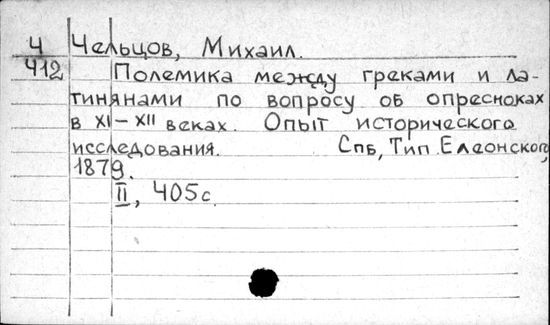 Ч Чельцов, Михаил.
Ч12 Полемика между греками и ла-
тинянами по вопросу об опресноках
в XI-XII веках. Опыт исторического
исследования. Спб, Тип Елеонского,
1879.
II, 405 с.